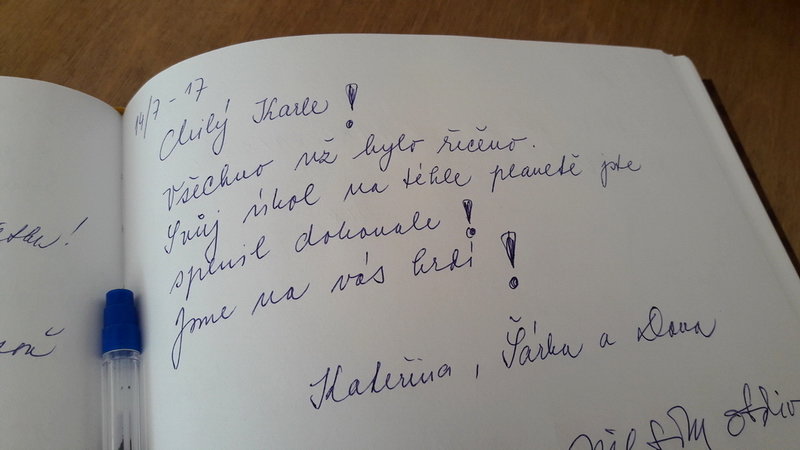 14/7 - 17
Milý Karle!
Všechno už bylo řečeno.
Svůj úkol na téhle planetě jste
splnil dokonale!
Jsme na vás hrdí!
Kateřina, Šárka a Dana